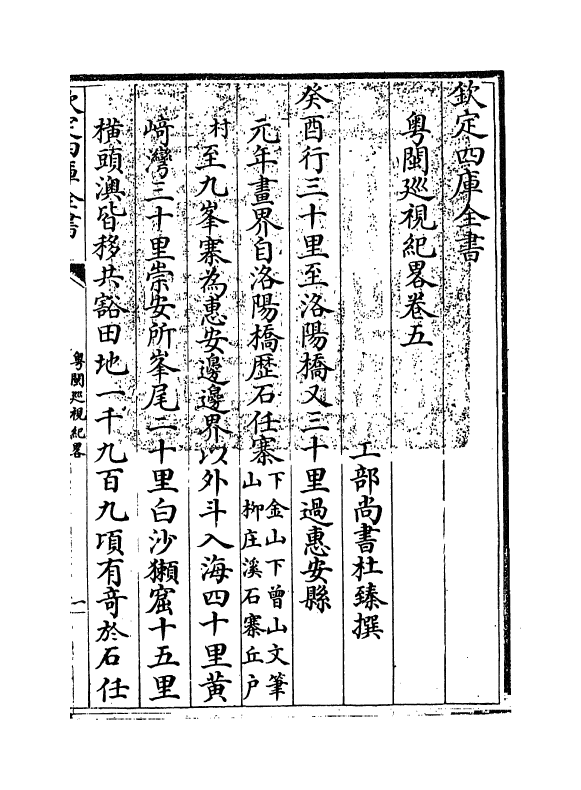 欽定四庫全書
粵閩廵視紀畧卷五
工部尚書杜臻撰
癸酉行三十里至洛陽橋又三十里過惠安縣
元年畫界自洛陽橋歴石任寨下金山下曾山文筆山柳庄溪石寨丘户
村至九峯寨為惠安邊邊界以外斗入海四十里黄
﨑灣三十里崇安所峯尾二十里白沙獺窟十五里
横頭澳皆移共豁田地一千九百九頃有竒於石任
欽定四庫全書
粵閩廵視紀畧
一